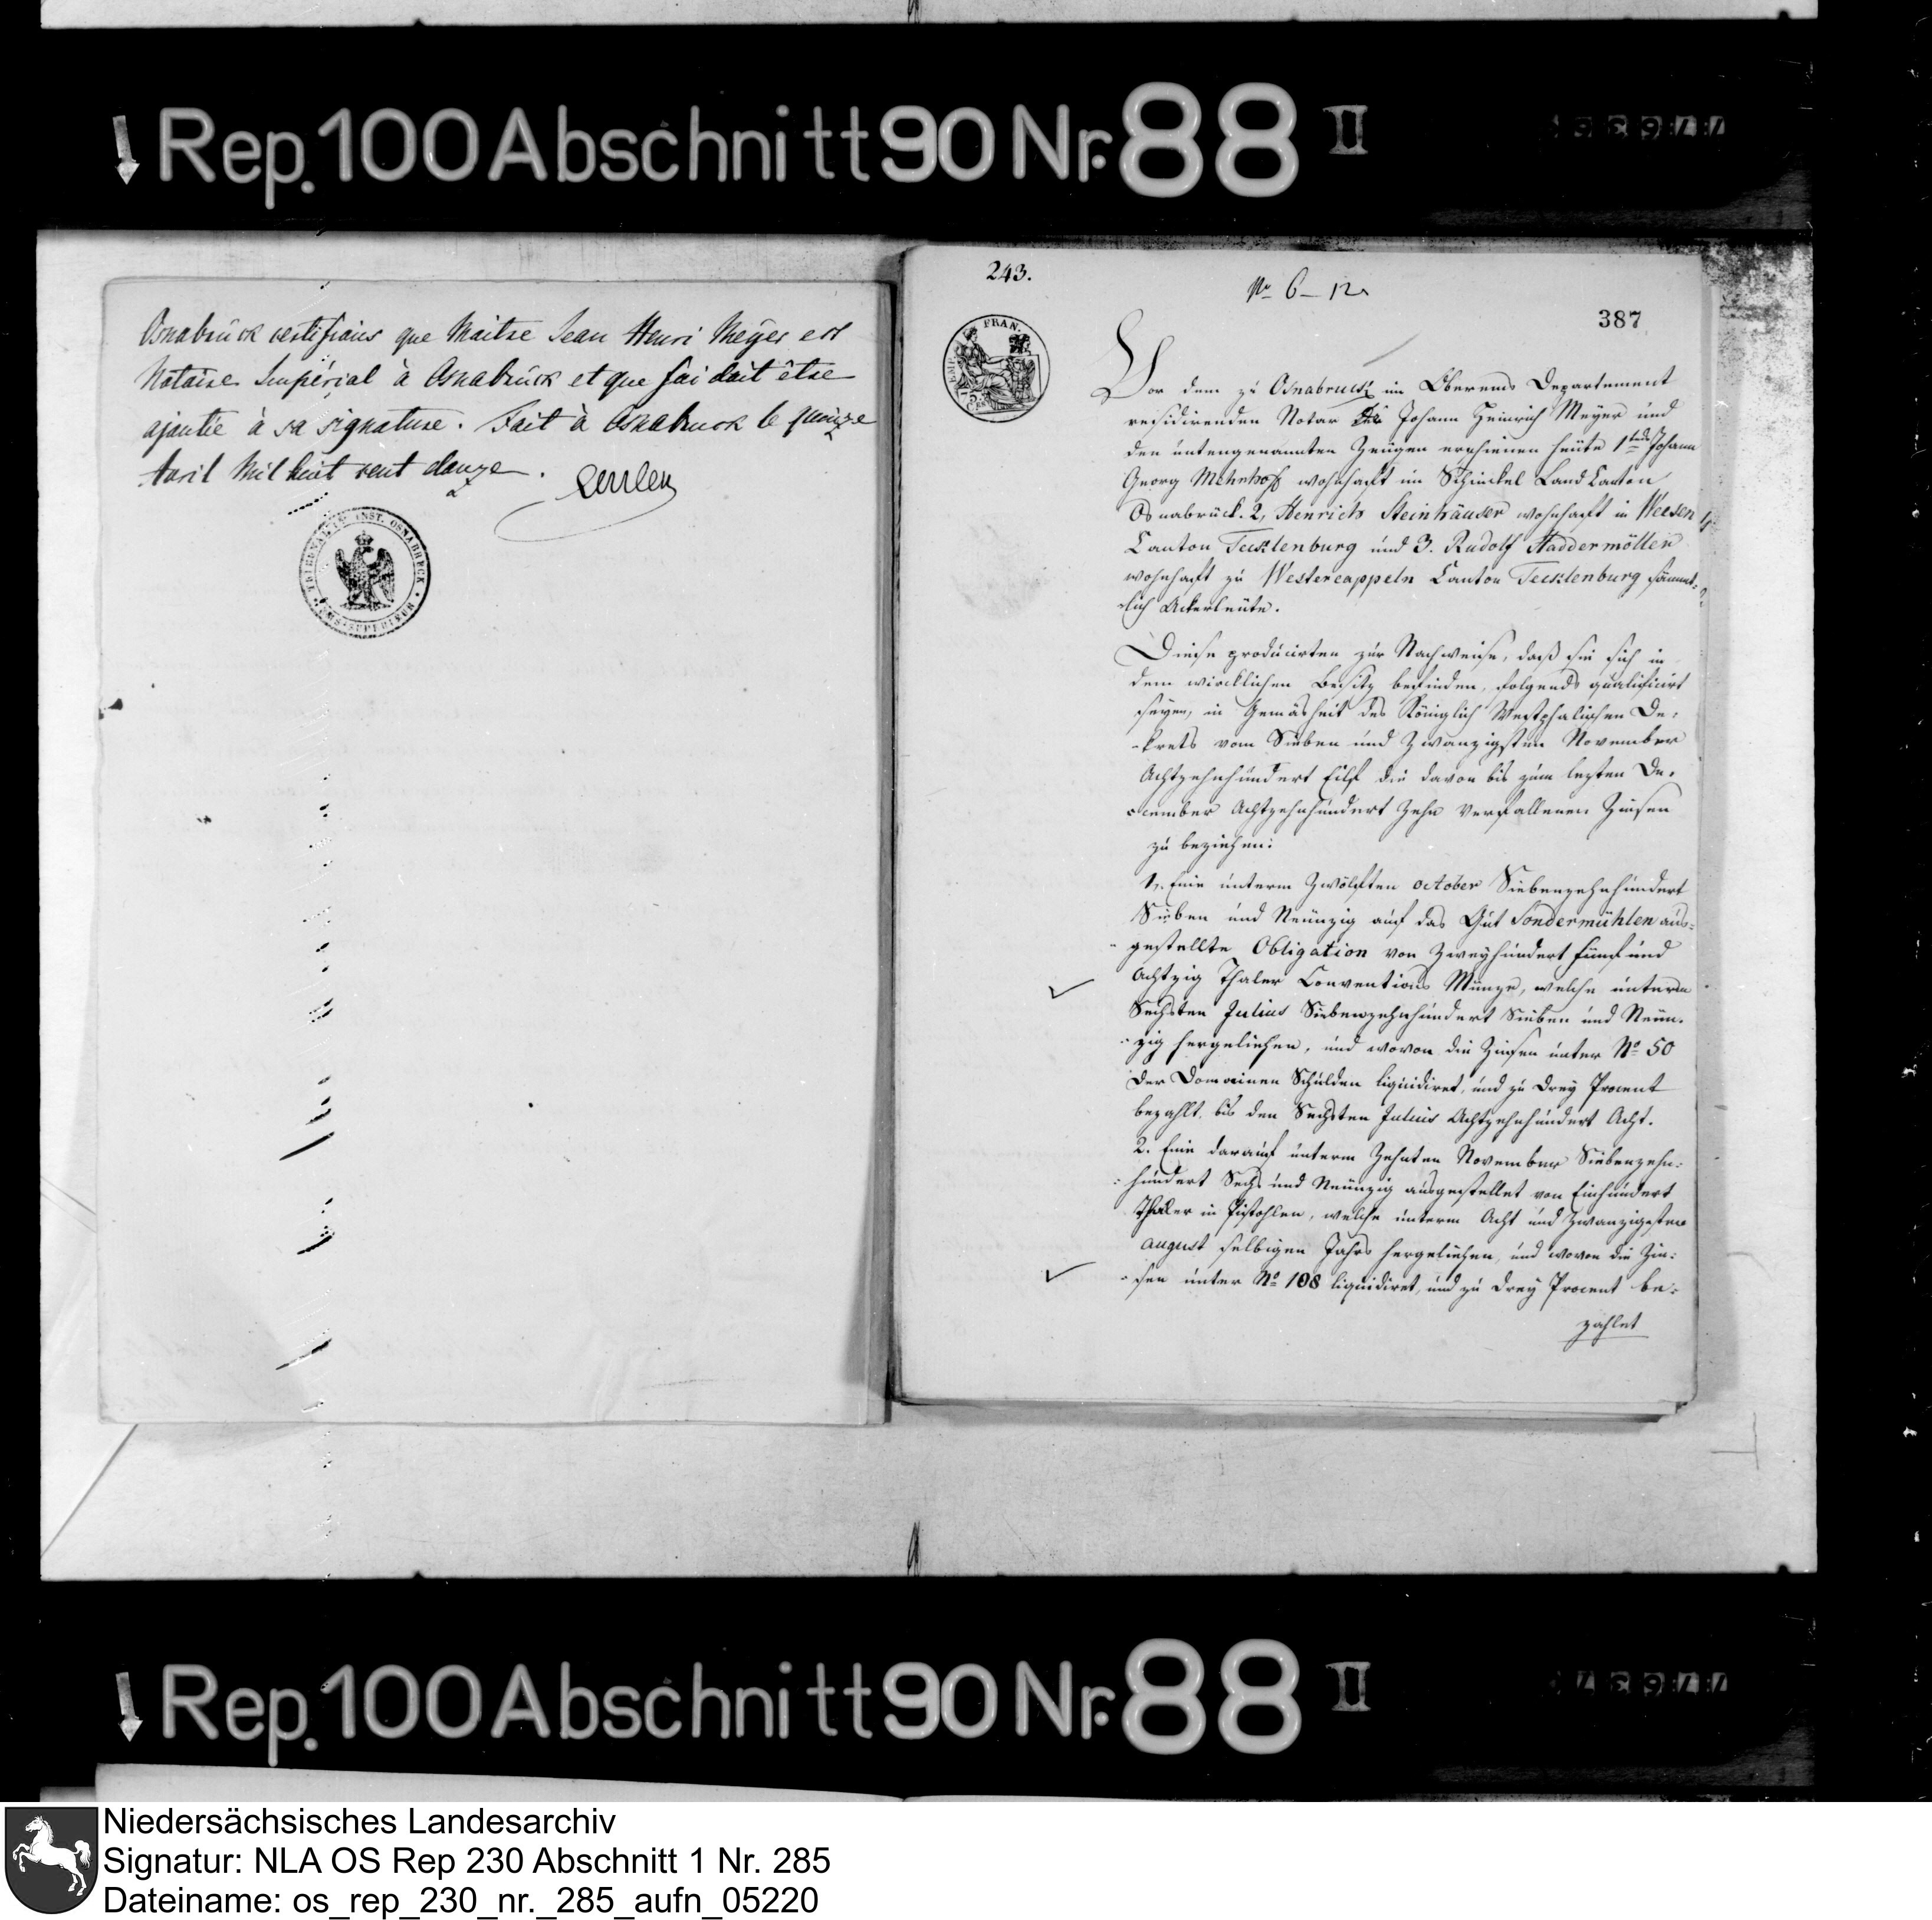 Rep. 100 Abschnitt 90 Nr. 88 II
Osnabrück certifions que Maitre Jean Henri Meyer est
Notaire Impérial à Osnabrück et que foi doit être
ajoutée à sa signature. Fait à Osnabruck le quinze
Avril Mil huit cent douze.
INST. OSNABRUCK
243.
No 6 - 12
387
EMP. FRAN.
75.
Vor dem zu Osnabruck im Oberems Departement
residirenden Notar Johann Heinrich Meyer und
den untengenannten Zeugen erschienen heute 1tens Johann
Georg wohnhaft im Schinckel Land Canton
Osnabrück. 2, Henrich Steinhäuser wohnhaft in
Canton Tecklenburg und 3. Rudolf Haddermöller
wohnhaft zu Westercappeln Canton Tecklenburg sämmt-
-lich Ackerleute.
Diese producirten zur Nachweise, daß sie sich in
dem wircklichen Besitz befinden, folgends qualificirt
seyen, in Gemäsheit des Königlich Westphalischen De-
-krets vom Sieben und Zwanzigsten November
Achtzehnhundert Eilf die davon bis zum lezten De-
-cember Achtzehnhundert Zehn verfallenen Zinsen
zu beziehen:
1, Eine unterm Zwölften october Siebenzehnhundert
Sieben und Neunzig auf das Gut Sondermühlen aus-
-gestellte Obligation von Zweyhundert fünf und
Achtzig Thaler Conventions Münze, welche unterm
Sechsten Julius Siebenzehnhundert Sieben und Neun-
-zig hergeliehen, und wovon die Zinsen unter No 50
der Domainen Schulden liquidiret, und zu drey Procent
bezahlt, bis den Sechsten Julius Achtzehnhundert Acht.
2. Eine darauf unterm Zehnten November Siebenzehn-
-hundert Sechs und Neunzig ausgestellet von Einhundert
Thaler in Pistohlen, welche unterm Acht und Zwanzigsten
august selbigen Jahrs hergeliehen, und wovon die Zin-
-sen unter No 108 liquidiret, und zu drey Procent be-
zahlet
Rep. 100 Abschnitt 90 Nr. 88 II
Niedersächsisches Landesarchiv
Signatur: NLA OS Rep 230 Abschnitt 1 Nr. 285
Dateiname: os_rep_230_nr._285_aufn_05220